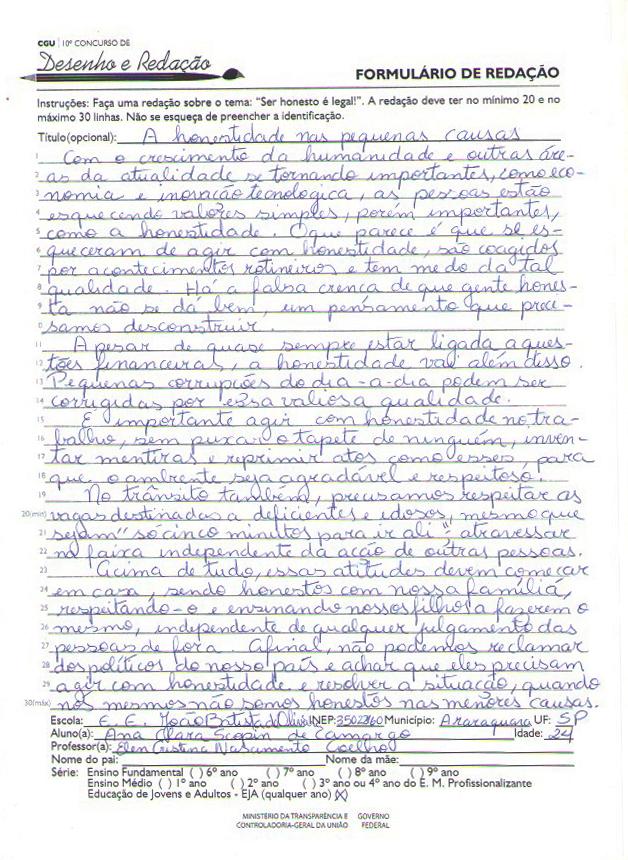 CGU | 10º CONCURSO DE
Desenho e Redação
FORMULÁRIO DE REDAÇÃO
Instruções: Faça uma redação sobre o tema: "Ser honesto é legal!". A redação deve ter no mínimo 20 e no
máximo 30 linhas. Não se esqueça de preencher a identificação.
Título(opcional): A honestidade nas pequenas causas
1 Com o crescimento da humanidade e outras áre-
2 as da atualidade se tornando importantes, como eco-
3 nomia e inovação tecnológica, as pessoas estão
4 esquecendo valores simples, porém importantes,
5 como a honestidade. O que parece é que se es-
6 queceram de agir com honestidade, são coagidos
7 por acontecimentos rotineiros e tem medo da tal
8 qualidade. Há a falsa crença de que gente hones-
9 ta não se dá bem, um pensamento que preci-
0 samos desconstruir.
11 Apesar de quase sempre estar ligada a ques-
12 tões financeiras, a honestidade vai além disso.
13 Pequenas corrupções do dia-a-dia podem ser
14 corrigidas por essa valiosa qualidade.
15 É importante agir com honestidade no tra-
16 balho, sem puxar o tapete de ninguém, inven-
17 tar mentiras e reprimir atos como esses, para
18 que o ambiente seja agradável e respeitoso.
19 No trânsito também, precisamos respeitar as
20(mín) vagas destinadas a deficientes e idosos, mesmo que
21 sejam "só cinco minutos para ir ali", atravessar
22 na faixa independente da acção de outras pessoas.
23 Acima de tudo, essas atitudes devem começar
24 em casa, sendo honestos com nossa família,
25 respeitando-o e ensinando nossos filhos a fazerem o
26 mesmo, independente de qualquer julgamento das
27 pessoas de fora. Afinal, não podemos reclamar
28 dos políticos do nosso país e achar que eles precisam
29 agir com honestidade e resolver a situação, quando
30(máx) nós mesmos não somos honestos nas menores causas.
Escola: E. E. João Batista de Oliveira INEP: 35022160 Município: Araraquara UF: SP
Aluno(a): Ana Clara Scopin de Camargo Idade: 24
Professor(a): Elen Cristina Nascimento Coelho
Nome do pai: Nome da mãe:
Série: Ensino Fundamental ( ) 6º ano ( ) 7º ano ( ) 8º ano ( ) 9º ano
Ensino Médio ( ) 1º ano ( ) 2º ano ( ) 3º ano ou 4º ano do E. M. Profissionalizante
Educação de Jovens e Adultos - EJA (qualquer ano) (X)
MINISTÉRIO DA TRANSPARÊNCIA E GOVERNO
CONTROLADORIA-GERAL DA UNIÃO FEDERAL